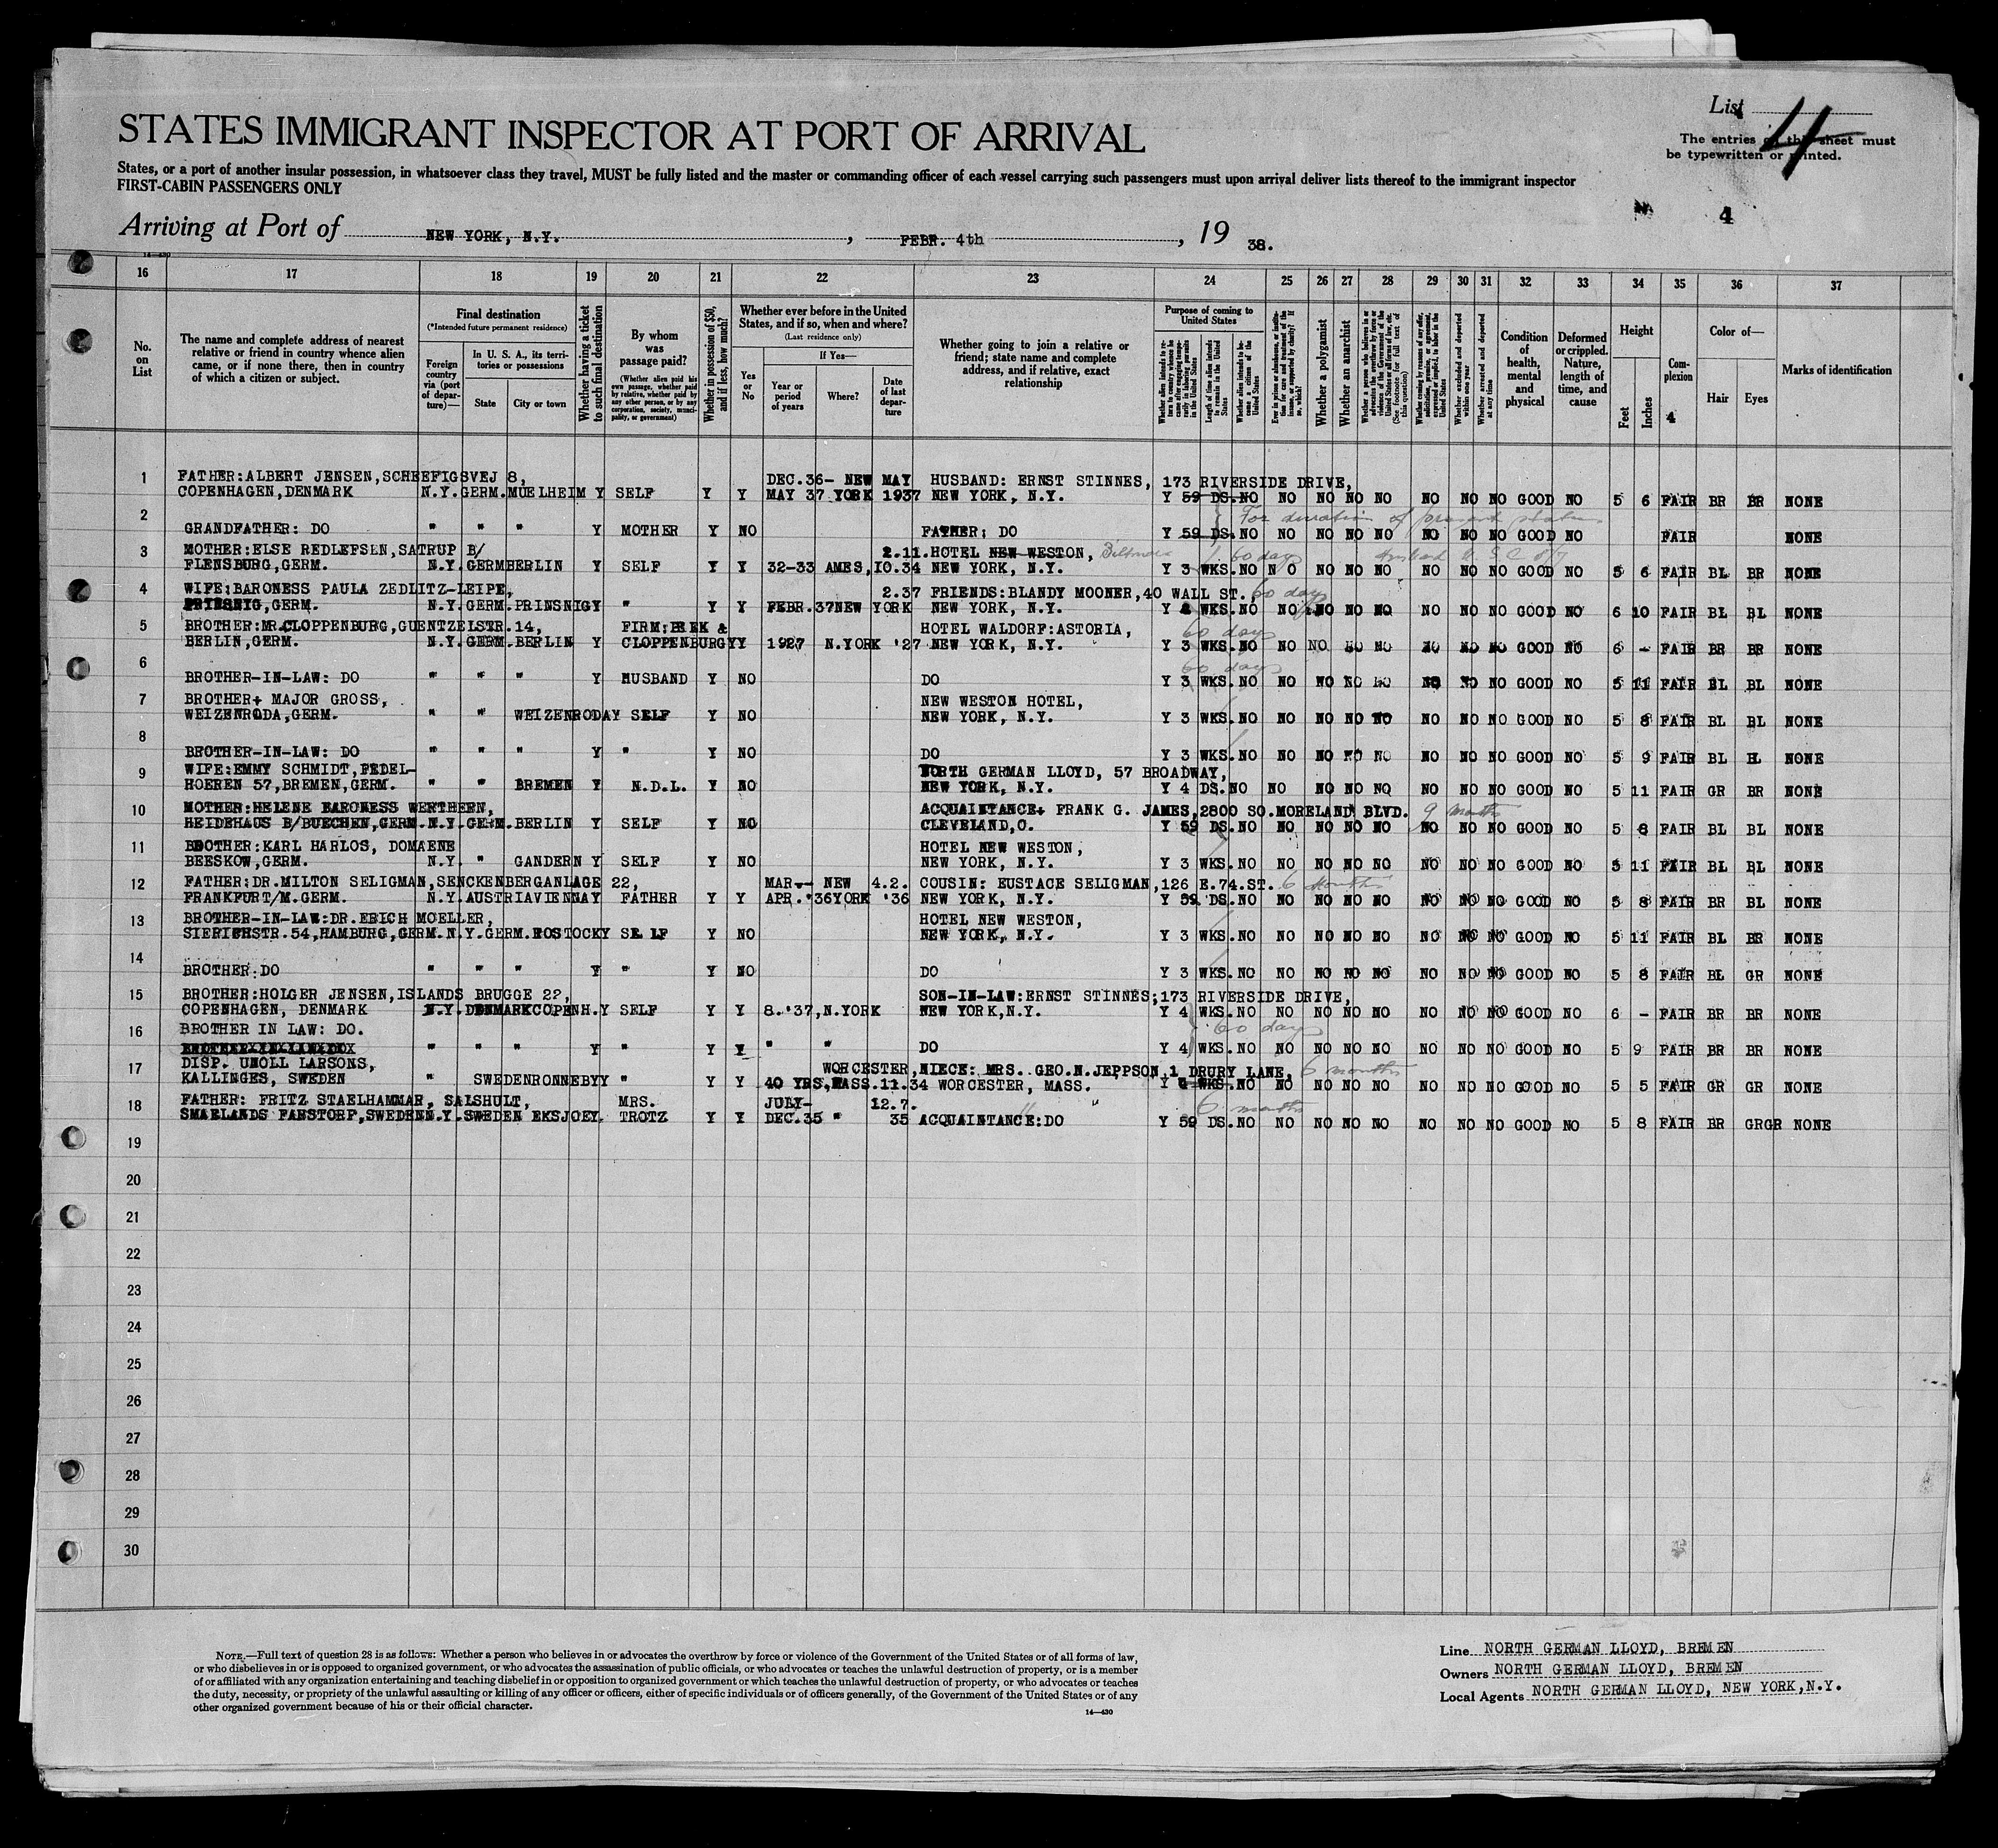 List 4
STATES IMMIGRANT INSPECTOR AT PORT OF ARRIVAL
The entries on this sheet must
be typewritten or printed.
States, or a port of another insular possession, in whatsoever class they travel, MUST be fully listed and the master or commanding officer of each vessel carrying such passengers must upon arrival deliver lists thereof to the immigrant inspector
FIRST-CABIN PASSENGERS ONLY
4
Arriving at Port of NEW YORK, N.Y. , FEBR. 4th , 19 38.
14—430
16 17 18 19 20 21 22 23 24 25 26 27 28 29 30 31 32 33 34 35 36 37
No. on List
The name and complete address of nearest relative or friend in country whence alien came, or if none there, then in country of which a citizen or subject.
Final destination
(*Intended future permanent residence)
Foreign country via (port of departure)—
In U. S. A., its territories or possessions
State
City or town
Whether having a ticket to such final destination
By whom was passage paid?
(Whether alien paid his own passage, whether paid by relative, whether paid by any other person, or by any corporation, society, municipality, or government)
Whether in possession of $50, and if less, how much?
Whether ever before in the United States, and if so, when and where?
(Last residence only)
Yes or No
If Yes—
Year or period of years
Where?
Date of last departure
Whether going to join a relative or friend; state name and complete address, and if relative, exact relationship
Purpose of coming to United States
Length of time alien intends to remain in the United States
Whether alien intends to become a citizen of the United States
Whether a polygamist
Whether an anarchist
(See footnote for full text of this question)
Whether excluded and deported within one year
Whether arrested and deported at any time
Condition of health, mental and physical
Deformed or crippled. Nature, length of time, and cause
Height
Feet
Inches
Complexion
4
Color of—
Hair
Eyes
Marks of identification
1 FATHER:ALBERT JENSEN,SCHEEFIGSVEJ 8, DEC.36- NEW MAY HUSBAND: ERNST STINNES, 173 RIVERSIDE DRIVE,
COPENHAGEN,DENMARK N.Y.GERM.MUELHEIM Y SELF Y Y MAY 37 YORK 1937 NEW YORK, N.Y. Y 59 DS.NO NO NO NO NO NO NO NO GOOD NO 5 6 FAIR BR BR NONE
2 For duration of present status
GRANDFATHER: DO " " " Y MOTHER Y NO FATHER; DO Y 59 DS.NO NO NO NO NO NO NO NO GOOD NO FAIR NONE
3 MOTHER:ELSE REDLEFSEN,SATRUP B/ 2.11.HOTEL NEW WESTON, Biltmore 60 days
FLENSBURG,GERM. N.Y.GERMBERLIN Y SELF Y Y 32-33 AMES,IO.34 NEW YORK, N.Y. Y 3 WKS.NO NO NO NO NO NO NO NO GOOD NO 5 6 FAIR BL BR NONE
4 WIFE:BARONESS PAULA ZEDLITZ-LEIPE, 2.37 FRIENDS:BLANDY MOONER,40 WALL ST., 60 days
GERM. N.Y.GERM.PRINSNIGY " Y Y FEBR.37NEW YORK NEW YORK, N.Y. Y WKS.NO NO NO NO NO NO NO NO GOOD NO 6 10 FAIR BL BL NONE
5 BROTHER:MR.CLOPPENBURG,GUENTZELSTR.14, FIRM:PEEK & HOTEL WALDORF:ASTORIA, 60 days
BERLIN,GERM. N.Y.GERM.BERLIN Y CLOPPENBURGYY 1927 N.YORK '27 NEW YORK, N.Y. Y 3 WKS.NO NO NO NO NO NO NO NO GOOD NO 6 - FAIR BR BR NONE
6 60 days
BROTHER-IN-LAW: DO " " " Y HUSBAND Y NO DO Y 3 WKS.NO NO NO NO NO NO NO NO GOOD NO 5 11 FAIR BL BL NONE
7 BROTHER+ MAJOR GROSS, NEW WESTON HOTEL,
WEIZENRODA,GERM. " " WEIZENRODAY SELF Y NO NEW YORK, N.Y. Y 3 WKS.NO NO NO NO NO NO NO NO GOOD NO 5 8 FAIR BL BL NONE
8 BROTHER-IN-LAW: DO " " " Y " Y NO DO Y 3 WKS.NO NO NO NO NO NO NO NO GOOD NO 5 9 FAIR BL NONE
9 WIFE:EMMY SCHMIDT,FEDEL- NORTH GERMAN LLOYD, 57 BROADWAY,
HOEREN 57,BREMEN,GERM. " " BREMEN Y N.D.L. Y NO NEW YORK, N.Y. Y 4 DS.NO NO NO NO NO NO NO NO GOOD NO 5 11 FAIR GR BR NONE
10 MOTHER:HELENE BARONESS WERTHERN, ACQUAINTANCE+ FRANK G. JAMES,2800 SO.MORELAND BLVD. 9 months
HEIDEHAUS B/BUECHEN,GERM.N.Y.GERM.BERLIN Y SELF Y NO CLEVELAND,O. Y 59 DS.NO NO NO NO NO NO NO NO GOOD NO 5 8 FAIR BL BL NONE
11 BROTHER:KARL HARLOS, DOMAENE HOTEL NEW WESTON,
BEESKOW,GERM. N.Y. " GANDERN Y SELF Y NO NEW YORK, N.Y. Y 3 WKS.NO NO NO NO NO NO NO NO GOOD NO 5 11 FAIR BL BL NONE
12 FATHER:DR.MILTON SELIGMAN,SENCKENBERGANLAGE 22, MAR-- NEW 4.2. COUSIN: EUSTACE SELIGMAN,126 E.74.ST. 6 months
FRANKFURT/M.GERM. N.Y.AUSTRIAVIENNAY FATHER Y Y APR.'36YORK '36 NEW YORK, N.Y. Y 59 DS.NO NO NO NO NO NO NO NO GOOD NO 5 8 FAIR BR BL NONE
13 BROTHER-IN-LAW:DR.ERICH MOELLER, HOTEL NEW WESTON,
SIERICHSTR.54,HAMBURG,GERM.N.Y.GERM.ROSTOCKY SELF Y NO NEW YORK, N.Y. Y 3 WKS.NO NO NO NO NO NO NO NO GOOD NO 5 11 FAIR BL BR NONE
14 BROTHER:DO " " " Y " Y NO DO Y 3 WKS.NO NO NO NO NO NO NO NO GOOD NO 5 8 FAIR BL GR NONE
15 BROTHER:HOLGER JENSEN,ISLANDS BRUGGE 22, SON-IN-LAW:ERNST STINNES;173 RIVERSIDE DRIVE,
COPENHAGEN, DENMARK N.Y.DENMARKCOPENH.Y SELF Y Y 8.'37,N.YORK NEW YORK,N.Y. Y 4 WKS.NO NO NO NO NO NO NO NO GOOD NO 6 - FAIR BR BR NONE
16 BROTHER IN LAW: DO. 60 days
" " " Y " Y Y " " DO Y 4 WKS.NO NO NO NO NO NO NO NO GOOD NO 5 9 FAIR BR BR NONE
17 DISP. UNOLL LARSONS, WORCESTER,NIECE: MRS. GEO.N.JEPPSON,1 DRURY LANE, 6 months
KALLINGES, SWEDEN " SWEDENRONNEBYY " Y Y 40 YRS,MASS.11.34 WORCESTER, MASS. Y WKS.NO NO NO NO NO NO NO NO GOOD NO 5 5 FAIR GR GR NONE
18 FATHER: FRITZ STAELHAMMAR, SALSHULT, MRS. JULY- 12.7. " " 6 months
SMAELANDS FARSTORP,SWEDENN.Y.SWEDEN EKSJOEY. TROTZ Y Y DEC.35 " 35 ACQUAINTANCE:DO Y 59 DS.NO NO NO NO NO NO NO NO GOOD NO 5 8 FAIR BR GRGR NONE
19
20
21
22
23
24
25
26
27
28
29
30
NOTE.—Full text of question 28 is as follows: Whether a person who believes in or advocates the overthrow by force or violence of the Government of the United States or of all forms of law,
or who disbelieves in or is opposed to organized government, or who advocates the assassination of public officials, or who advocates or teaches the unlawful destruction of property, or is a member
of or affiliated with any organization entertaining and teaching disbelief in or opposition to organized government or which teaches the unlawful destruction of property, or who advocates or teaches
the duty, necessity, or propriety of the unlawful assaulting or killing of any officer or officers, either of specific individuals or of officers generally, of the Government of the United States or of any
other organized government because of his or their official character.
14—430
Line NORTH GERMAN LLOYD, BREMEN
Owners NORTH GERMAN LLOYD, BREMEN
Local Agents NORTH GERMAN LLOYD, NEW YORK,N.Y.